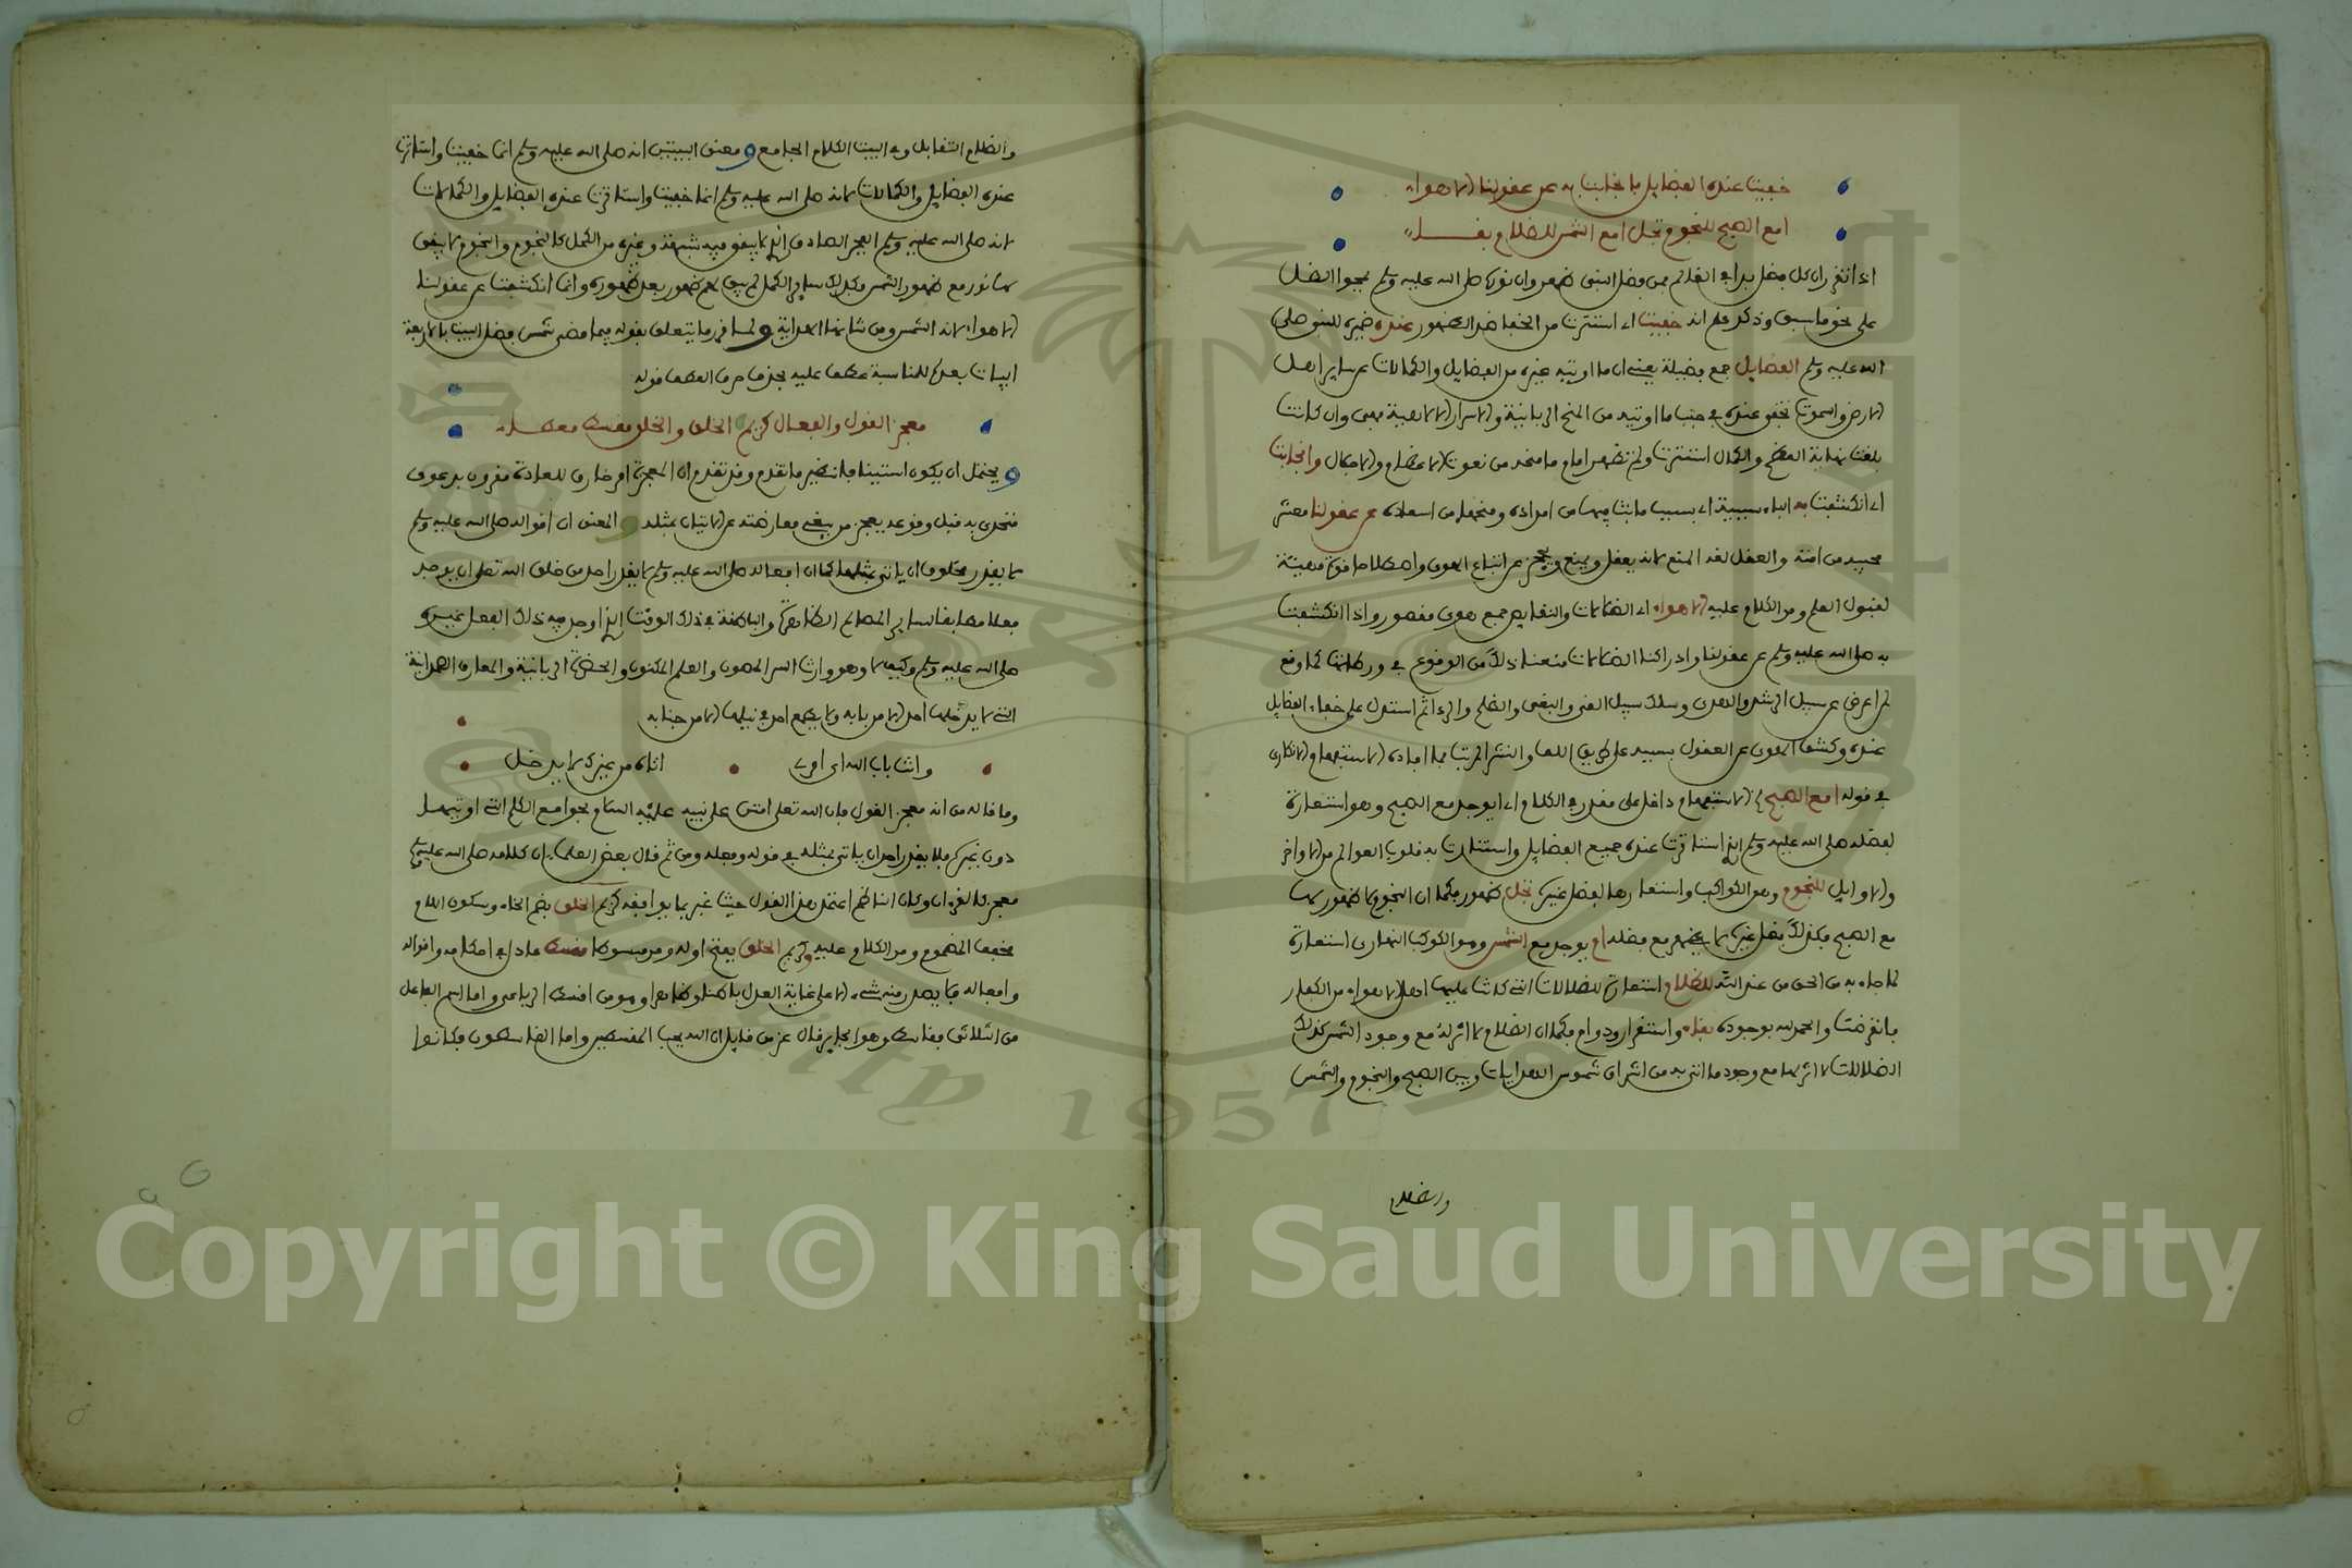 خفيت عنده الفضايل وانجابت به عن عقولنا الاهواء
امع الصبح للنجوم تجل امع الشمس للظلام بقاء
اذا تقرر ان كل فضل بدا في العالم فمن فضل النبي ظهر وان نوره صلى الله عليه وسلم يمحوا الضل
على نحو ما سبق وذكر علم انه خفيت اي استترت من الخفا ضد الظهور عنده ضميره للنبي صلى
الله عليه وسلم الفضايل جمع فضيلة يعني ان ما اوتيه غيره من الفضايل والكمالات من ساير اهل
الارض والسموات تخفى عنده في جنب ما اوتيه من المنح الربانية والاسرار فهي وان كانت
بلغت نهاية العظم والكمال استترت ولم تظهر امام ما منحه من نعوت الاعظام والاجلال وانجابت
اي انكشفت به الباء سببية اي بسبب ما بث فينا من امداده ومنحنا من اسعاده عن عقولنا معشر
محبيه من امته والعقل لغة المنع لانه يعقل ويمنع ويحجز عن اتباع الهوى واصطلاحا قوة مهيئة
لقبول العلم ومر الكلام عليه الاهواء اي الضلالات والنقايص جمع هوى مقصور واذا انكشفت
به صلى الله عليه وسلم عن عقولنا وادراكنا الضلالات منعنا ذلك من الوقوع في ورطاتها كما وقع
لمن اعرض عن سبيل الرشد والهدى وسلك سبيل الغي والبغي والظلم والردا ثم استدل على خفاء الفضايل
عنده وكشف الهوى عن العقول بسببه على طريق اللف والنشر المرتب بما افاده الاستفهام الانكاري
في قوله امع الصبح الاستفهام داخل على مقدر في الكلام اي ايوجد مع الصبح وهو استعارة
لفضله صلى الله عليه وسلم الذي استنارت عنده جميع الفضايل واستنارت به قلوب العوالم من الاواخر
والاوايل للنجوم وهي الكواكب واستعارها لفضل غيره تجل ظهور فكما ان النجوم لا ظهور لها
مع الصبح فكذلك فضل غيره لا يظهر مع فضله ام يوجد مع الشمس وهو الكوكب النهاري استعارة
لما جاء به من الحق من عند الله للظلام استعارة للضلالات التي كانت عليها اهل الاهواء من الكفار
فانقرضت والحمد لله بوجوده بقاء واستقرار ودوام فكما ان الظلام لا اثر له مع وجود الشمس كذلك
الضلالات لا اثر لها مع وجود ما اتى به من اشراق شموس الهدايات وبين الصبح والنجوم والشمس
والظلام
والظلام التقابل وفي البيت الكلام الجامع ومعنى البيتين انه صلى الله عليه وسلم انما خفيت واستترت
عنده الفضايل والكمالات لانه صلى الله عليه وسلم انما خفيت واستترت عنده الفضايل والكمالات
لانه صلى الله عليه وسلم الفجر الصادق الذي لا يبقى فيه شبهة وغيره من الكمل كالنجوم والنجوم لا يبقى
لها نور مع ظهور الشمس فكذلك ساير الكمل لم يبق لهم ظهور بعد ظهوره وانما انكشفت عن عقولنا
الاهواء لانه الشمس ومن شانها الهداية ولما قرر ما يتعلق بقوله فيما مضى شمس فضل البيت بالاربعة
ابيات بعده للمناسبة عطف عليه بحذف حرف العطف قوله
معجز القول والفعال كريم الخلق والخلق مقسط معطاء
ويحتمل ان يكون استينافا نظير ما تقدم وقد تقدم ان المعجزة امر خارق للعادة مقرون بدعوى
متحدى به قبل وقوعه يعجز من يبغي معارضته عن الاتيان بمثله والمعنى ان اقواله صلى الله عليه وسلم
لا يقدر مخلوق ان ياتي بمثلها كما ان افعاله صلى الله عليه وسلم لا يقدر احد من خلق الله تعلى ان يوجد
فعلا مطابقا لساير المصالح الظاهرة والباطنة في ذلك الوقت الذي اوجد فيه ذلك الفعل غيره
صلى الله عليه وسلم وكيف لا وهو وارث السر المصون والعلم المكنون والحضرة الربانية والمعارف الصمدانية
التي لا يدخلها احد الا من بابه ولا يطمع احد في نيلها الا من جنابه
وانت باب الله اي امرئ اتاه من غيرك لا يدخل
وما قاله من انه معجز القول فان الله تعلى امتن على نبيه عليه السلام بجوامع الكلم التي اوتيها
دون غيره فلا يقدر احد ان ياتي بمثله في قوله وفعله ومن ثم قال بعض العلماء ان كلامه صلى الله عليه وسلم
معجز كالقرءان وكان الناظم اعتمد هذا القول حيث عبر بما يوافقه كريم الخلق بضم الخاء وسكون اللام
مخفف المضموم ومر الكلام عليه وكريم الخلق بفتح اوله ومر مبسوطا مقسط عادل في احكامه واقواله
وافعاله فلا يصدر منه شيء الا على غاية العدل باطنا وظاهرا وهو من اقسط الرباعي واما اسم الفاعل
من الثلاثي فقاسط وهو الجاير قال عز من قايل ان الله يحب المقسطين واما القاسطون فكانوا
Copyright © King Saud University
1957